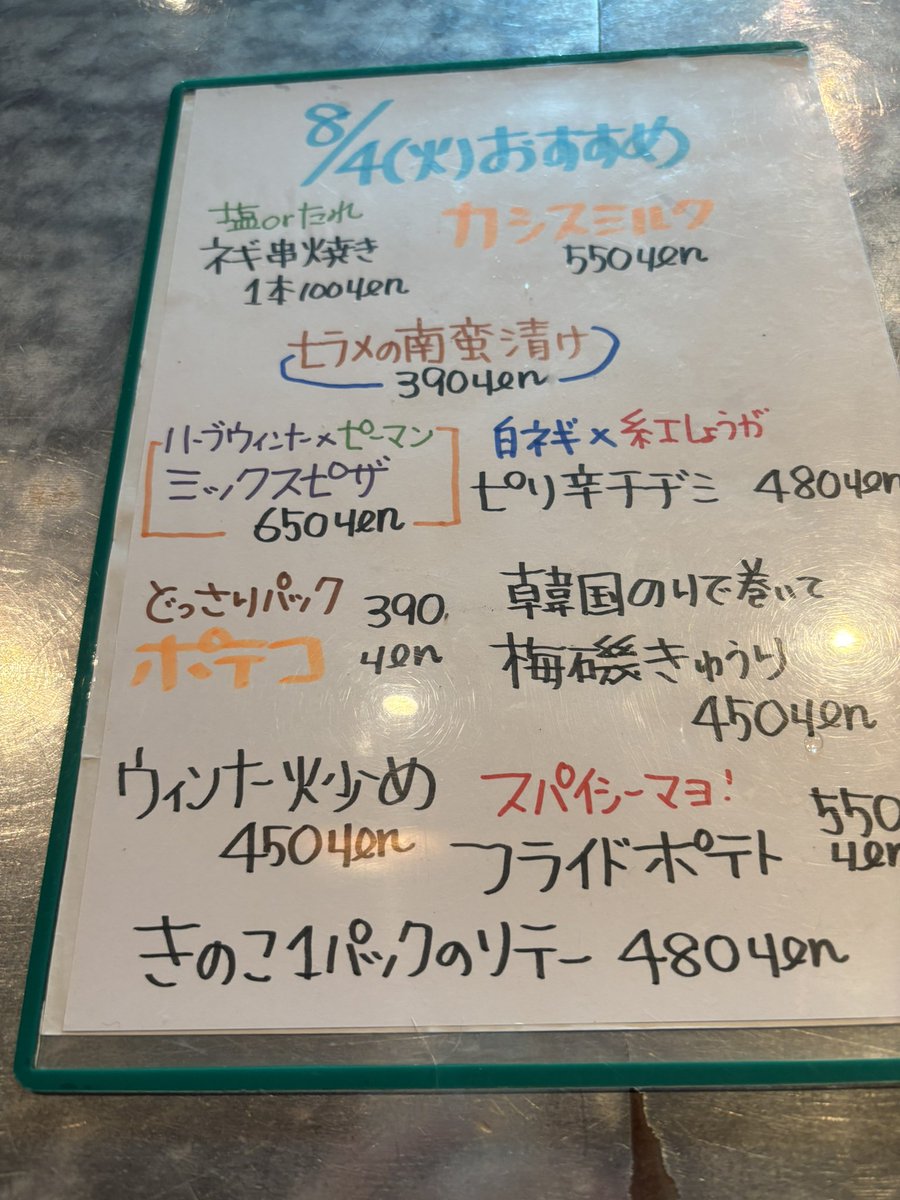 8/4(火)おすすめ
塩orたれ
ネギ串焼き
1本100yen
カシスミルク
550yen
セラメの南蛮漬け
390yen
ハーブウィンナー×ピーマン
ミックスピザ
650yen
白ネギ×紅しょうが
ピリ辛チヂミ 480yen
どっさりパック 390
ポテコ yen
韓国のりで巻いて
梅磯きゅうり
450yen
ウィンナー炒め
450yen
スパイシーマヨ! 550
フライドポテト yen
きのこ1パックのソテー 480yen